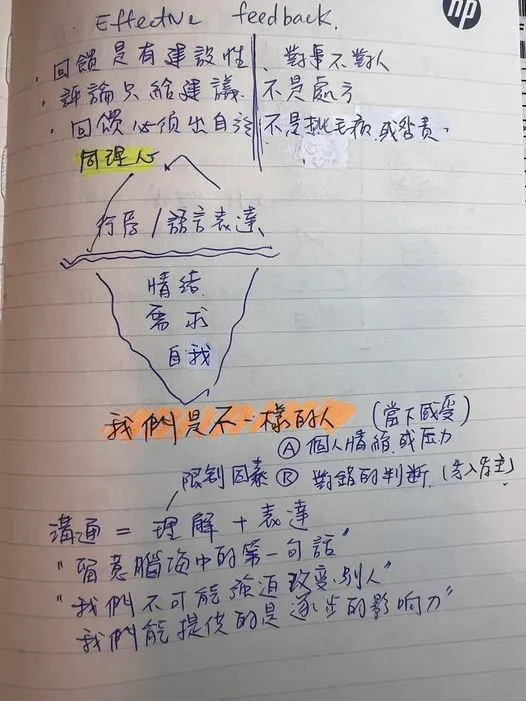 hp
Effective feedback.
· 回饋是有建設性、對事不對人
· 評論只給建議 不是處方
· 回饋必須出自於 不是挑毛病 或咎責.
同理心
行為/語言表達
情緒
需求
自我
我們是不一樣的人 (當下感受)
Ⓐ 個人情緒 或压力
限制因素 Ⓑ 對錯的判断 (先入為主)
溝通 = 理解 + 表達
"留意腦海中的第一句話"
"我們不可能強迫改变别人"
我們能提供的是逐步的影响力"